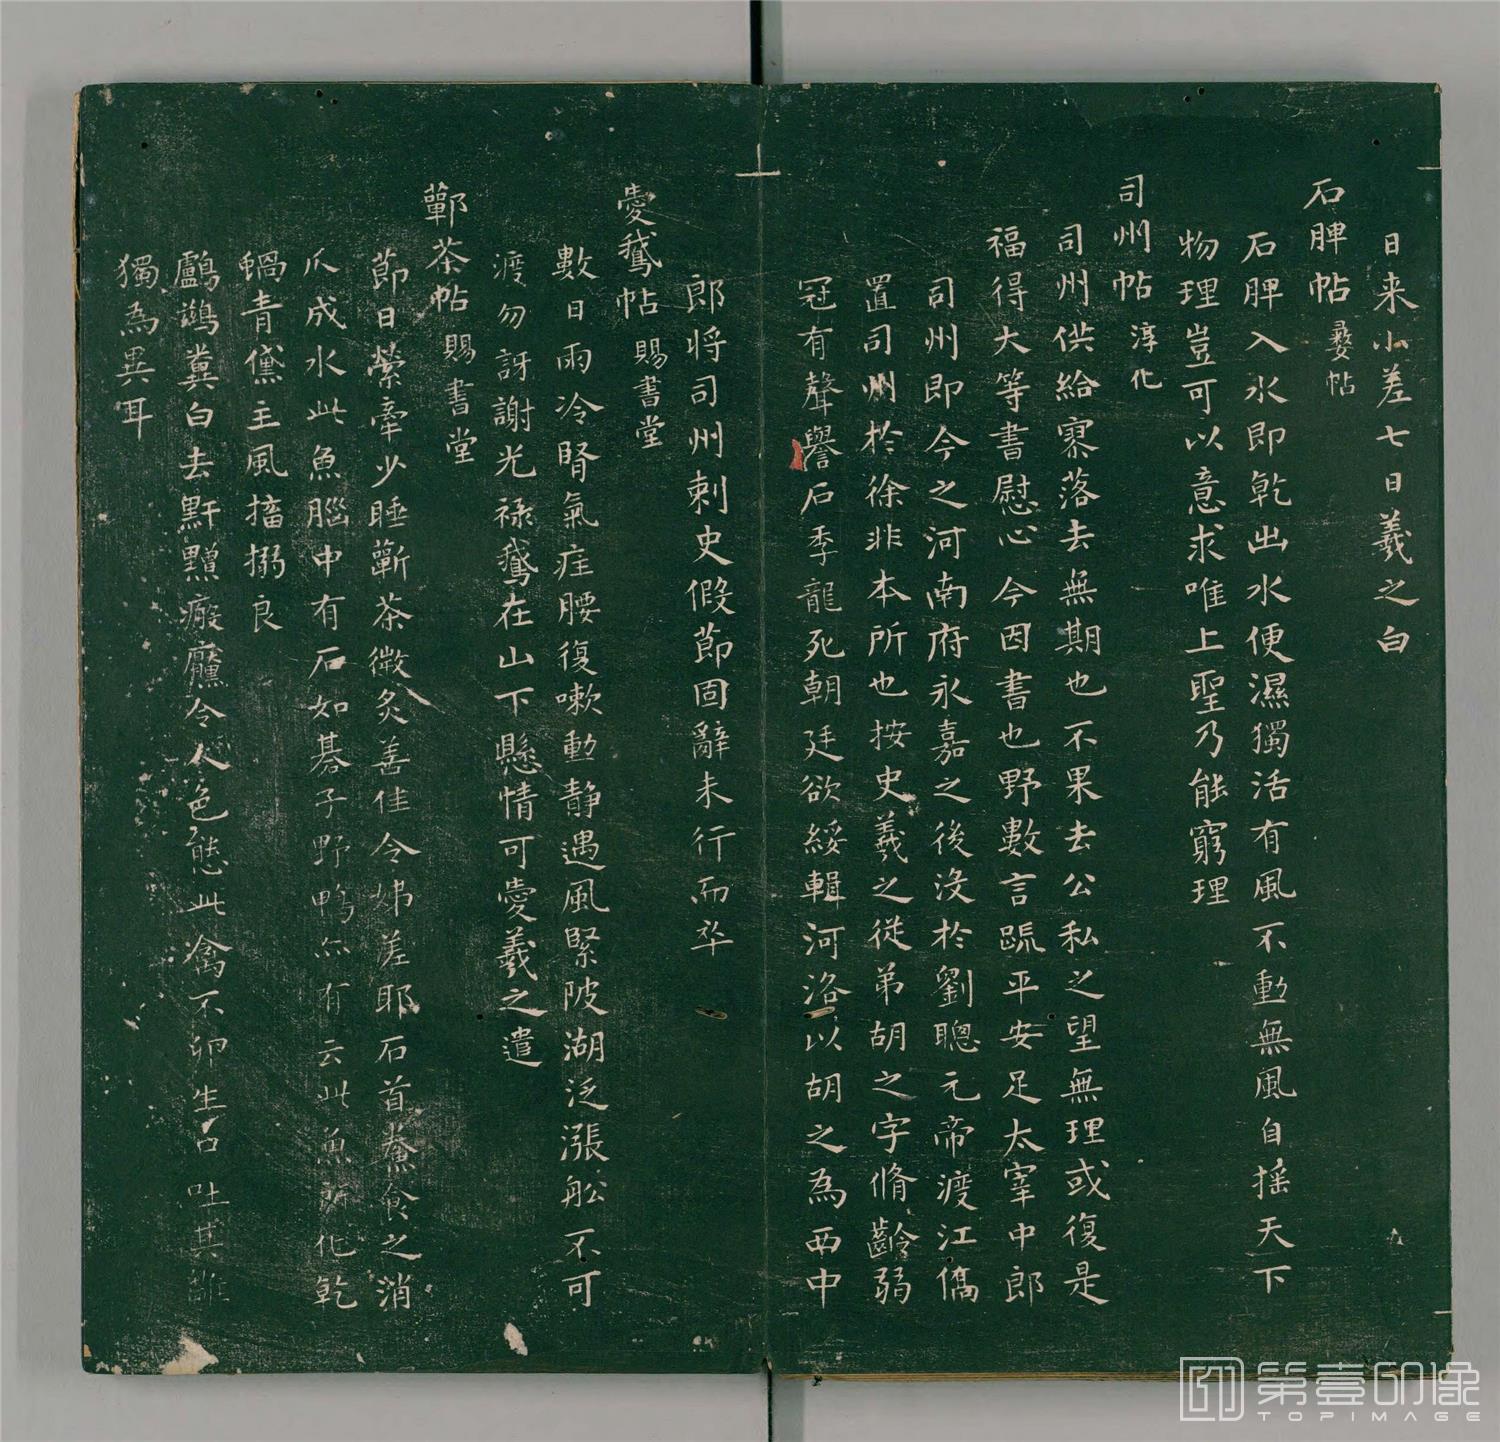 日来小差七日羲之白
石脾帖
石脾入水即乾出水便濕獨活有風不動無風自摇天下
物理豈可以意求唯上聖乃能窮理
司州帖 淳化
司州供給寥落去無期也不果去公私之望無理或復是
福得大等書慰心今因書也野數言疏平安足太宰中郎
司州即今之河南府永嘉之後没於劉聰元帝渡江僑
置司州於徐非本所也按史羲之従弟胡之字脩齡弱
冠有聲譽石季龍死朝廷欲綏輯河洛以胡之為西中
郎将司州刺史假節固辭未行而卒
愛鵞帖 賜書堂
數日雨冷腎氣疰腰復嗽動静遇風緊陂湖泛漲舩不可
渡勿訝謝光禄鵞在山下懸情可愛羲之遣
鄿茶帖 賜書堂
節日縈牽少睡蘄茶微炙善佳令姊差耶石首鮝食之消
爪成水此魚腦中有石如碁子野鴨亦有云此魚所化乾
蝸青黛主風搐搦良
鸕鷀糞白去䵟黯瘢黶令人色態此禽不卵生口吐其雛
獨為異耳
第壹印像
TOPIMAGE